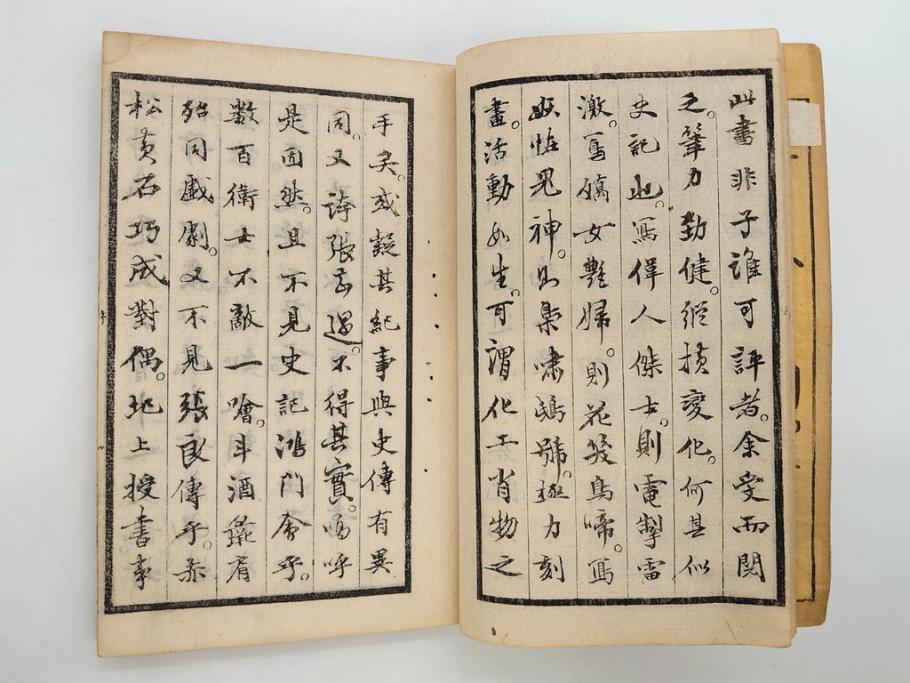 此書非子誰可評者。余受而閱
之。筆力勁健。縱橫變化。何其似
史記也。寫偉人傑士。則電掣雷
激。寫嬌女艷婦。則花笑鳥啼。寫
妖怪鬼神。則梟嘯鴟號。極力刻
畫。活動如生。可謂化工肖物之
手矣。或疑其紀事與史傳有異
同。又誇張甚過。不得其實。嗚呼
是固然。且不見史記鴻門會乎。
數百衛士不敵一噲。斗酒彘肩
殆同戲劇。又不見張良傳乎。赤
松黃石巧成對偶。圯上授書事